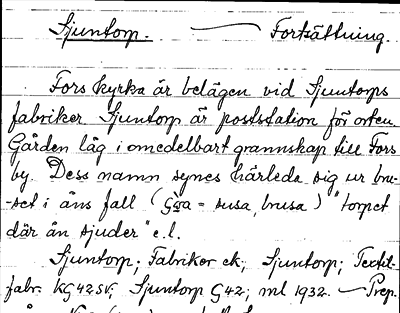 Sjuntorp. — Fortsättning.
Fors kyrka är belägen vid Sjuntorps
fabriker. Sjuntorp är poststation för orten.
Gården låg i omedelbart grannskap till Fors
by. Dess namn synes härleda sig ur bru-
-set i åns fall ( = susa, brusa) "torpet
där ån sjuder" e.l.
Sjuntorp; Fabriker ek; Sjuntorp; Textil-
fabr. KG42SV; Sjuntorp G42; ml 1932. — Prep.